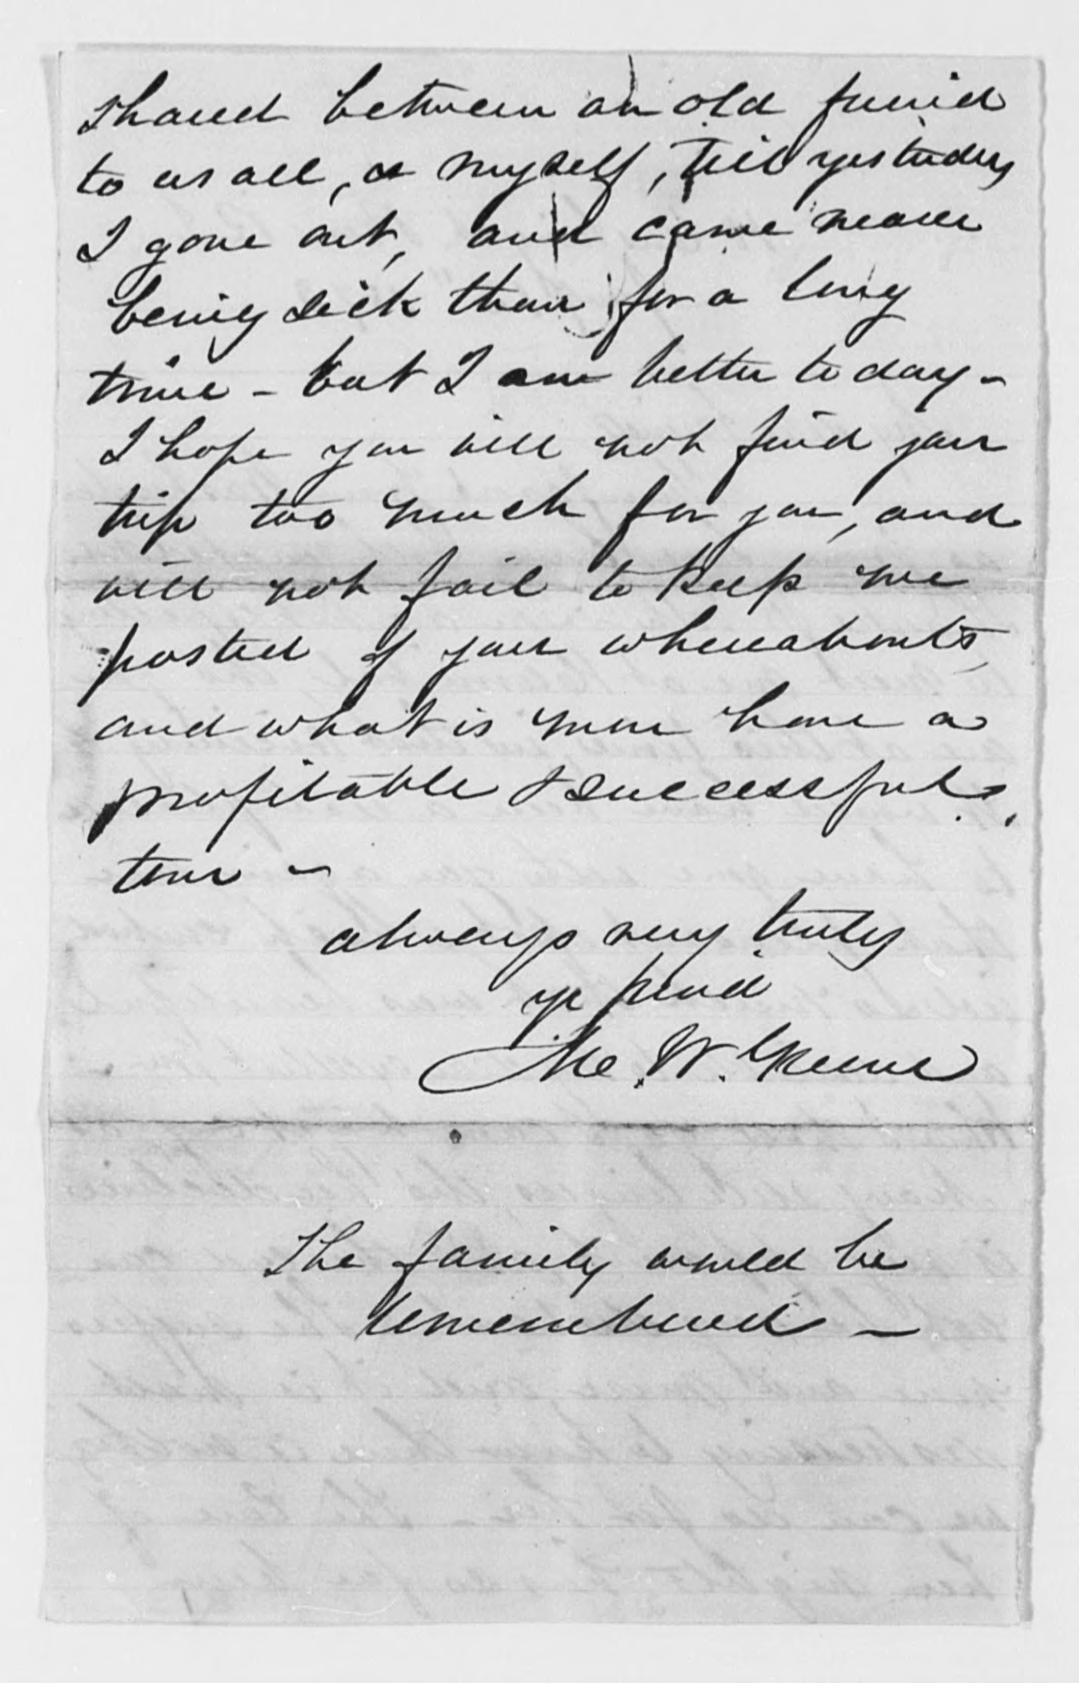 shared between an old friend
to us all, & myself, till yesterday
I gave out, and came nearer
being sick than for a long
time - but I am better to day -
I hope you will not find your
trip too much for you, and
will not fail to keep me
posted of your whereabouts,
and what is more have a
profitable & successful
tour -
always very truly
yr friend
W. Greene
The family would be
remembered -